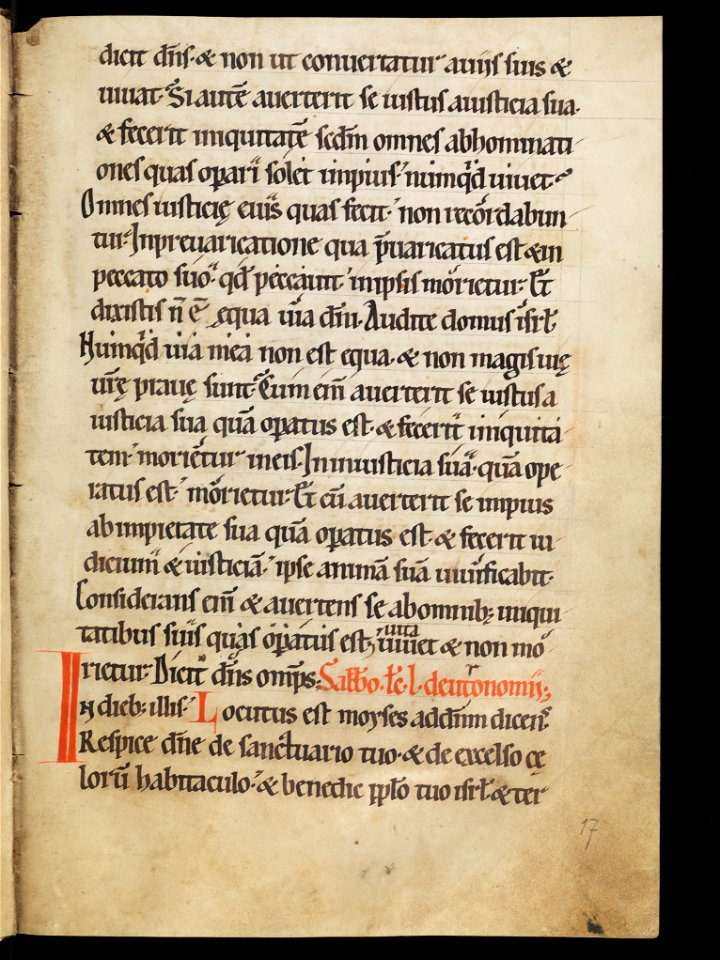 dicit dn̄s· & non ut conuertatur auiis suis &
uiuat· Si autē auerterit se iustus aiusticia sua·
& fecerit iniquitatē scdm̄ omnes abhominati
ones quas operari solet impius· numqd uiuet
Omnes iusticię eius quas fecit· non recordabun
tur· Inpreuaricatione qua p̄uaricatus est &in
peccato suo· qd peccauit· inipsis morietur· Et
dixistis n̄ ē ęqua uia dn̄i· Audite domus isrł
Numqd uia mea non est equa· & non magis uię
ur̄ę prauę sunt· Cum eni͞m auerterit se iustus a
iusticia sua quā operatus est· & fecerit iniquita
tem· morietur ineis· In iniusticia sua· quā ope
ratus est· morietur· Et cū auerterit se impius
ab impietate sua quā operatus est· & fecerit iu
dicium & iusticiā· ipse animā suā uiuificabit·
Considerans eni͞m & auertens se ab omnib; iniqui
tatibus suis quas operatus est, uita uiuet & non mo
rietur· Dicit dn̄s omp̄s· Sabbo· łc· l· deutronomii;
In dieb; illis· Locutus est moyses addn̄m dicens
Respice dn̄e de sanctuario tuo· & de excelso cę
lorū habitaculo· & benedic pplo tuo isrł & ter
17